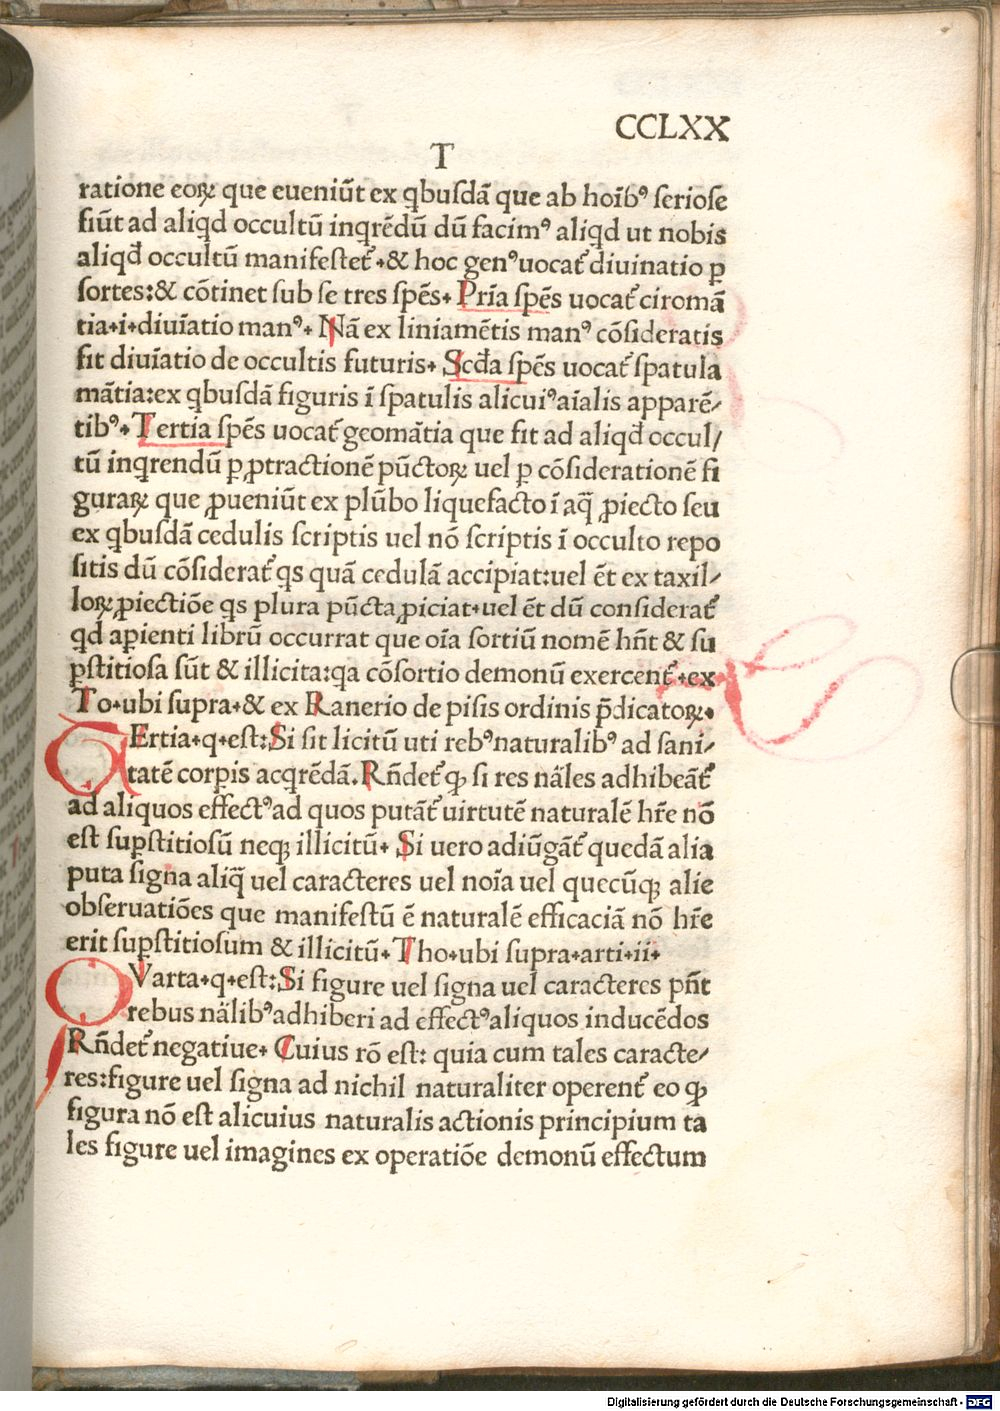 CCLXX
T
ratione eoꝝ que eueniūt ex qbusdā que ab hoīb⁹ seriose
fiūt ad aliqd occultū inqrēdū dū facim⁹ aliqd ut nobis
aliqđ occultū manifestet᷑.& hoc gen⁹uocat᷑ diuinatio ꝑ
sortes:& cōtinet sub se tres spēs. Pria̅ spēs uocat᷑ ciromā
tia.i.diuiatio̅ man⁹. Nā ex liniamētis man⁹ cōsideratis
fit diuiatio̅ de occultis futuris. Scđa spēs uocat᷑ spatula
mātia:ex qbusdā figuris ī spatulis alicui⁹aīalis apparē/
tib⁹. Tertia spēs uocat᷑ geomātia que fit ad aliqđ occul/
tū inqrendū ꝑ ꝓtractionē pūctoꝝ uel ꝑ cōsiderationē fi
guraꝝ que ꝓueniūt ex plūbo liquefacto ī aq̄ ꝓiecto seu
ex qbusdā cedulis scriptis uel nō scriptis ī occulto repo
sitis dū cōsiderat᷑ qs quā cedulā accipiat:uel ēt ex taxil/
loꝝ ꝓiectiōe qs plura pūcta ꝓiciat.uel ēt dū considerat᷑
qđ aꝑienti librū occurrat que oīa sortiū nomē hn̄t & su
ꝑstitiosa sūt & illicita:qa cōsortio demonū exercent᷑.ex
To.ubi supra.& ex Ranerio de pisis ordinis p̄dicatoꝝ.
TErtia.q.est:Si sit licitū uti reb⁹naturalib⁹ ad sani/
tatē corꝑis acqrēdā. Rn̄det᷑ ꝙ si res nāles adhibeāt᷑
ad aliquos effect⁹ad quos putāt᷑ uirtutē naturalē hr̄e nō
est suꝑstitiosū neqꝫ illicitū. Si uero adiūgāt᷑ quedā alia
puta signa aliq̄ uel caracteres uel noīa uel quecūqꝫ alie
obseruatiōes que manifestū ē naturalē efficaciā nō hr̄e
erit suꝑstitiosum & illicitū. Tho.ubi supra.arti.ii.
QVarta.q.est:Si figure uel signa uel caracteres pn̄t
rebus nālib⁹adhiberi ad effect⁹aliquos inducēdos
Rn̄det᷑ negatiue. Cuius rō est: quia cum tales caracte/
res:figure uel signa ad nichil naturaliter operent᷑ eo ꝙ
figura nō est alicuius naturalis actionis principium ta
les figure uel imagines ex operatiōe demonū effectum
Digitalisierung gefördert durch die Deutsche Forschungsgemeinschaft - DFG